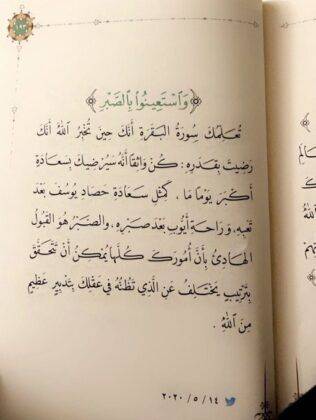 ٩٣
﴿وَٱسْتَعِينُوا۟ بِٱلصَّبْرِ﴾
تُعَلِّمُكَ سُورَةُ البَقَرَةِ أَنَّكَ حِينَ تُخْبِرُ اللهَ أَنَّكَ
رَضِيتَ بِقَدَرِهِ : كُنْ وَاثِقًا أَنَّهُ سَيُرْضِيكَ بِسَعَادَةٍ
أَكْبَرَ يَوْمًا مَا ، كَمِثْلِ سَعَادَةِ حَصَادِ يُوسُفَ بَعْدَ
تَعَبِهِ، وَرَاحَةِ أَيُّوبَ بَعْدَ صَبْرِهِ، وَالصَّبْرُ هُوَ القَبُولُ
الهَادِئُ بِأَنَّ أُمُورَكَ كُلَّهَا يُمْكِنُ أَنْ تَتَحَقَّقَ
بِتَرْتِيبٍ يَخْتَلِفُ عَنِ الَّذِي تَظُنُّهُ فِي عَقْلِكَ بِتَدْبِيرٍ عَظِيمٍ
مِنَ اللهِ .
٢٠٢٠ / ٥ / ١٤